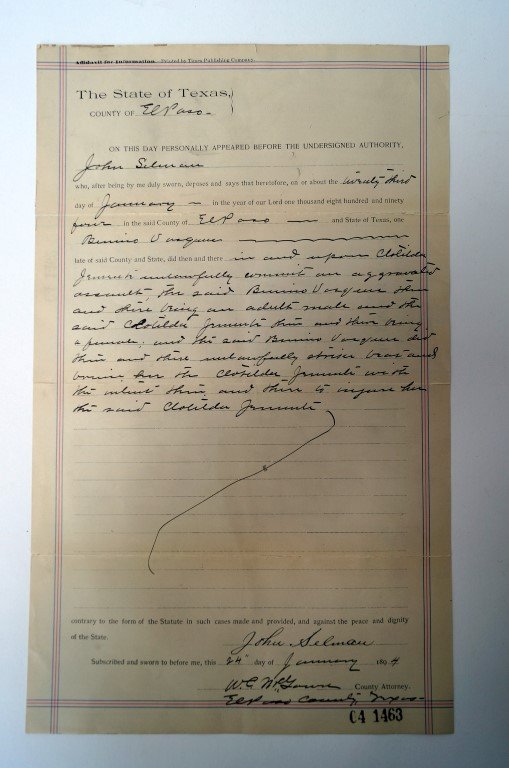 Affidavit for Information. Printed by Times Publishing Company.
The State of Texas,
COUNTY OF El Paso
ON THIS DAY PERSONALLY APPEARED BEFORE THE UNDERSIGNED AUTHORITY,
John Selman
who, after being by me duly sworn, deposes and says that heretofore, on or about the twenty third
day of January in the year of our Lord one thousand eight hundred and ninety
four in the said County of El Paso and State of Texas, one
Benino Vasquez
late of said County and State, did then and there in and upon Clotilda
unlawfully commit an aggravated
assault, the said Benino Vasquez then
and there being an adult male and the
said Clotilda then and there being
a female, and the said Benino Vasquez did
then and there unlawfully strike beat and
bruise her the Clotilda with
the intent then and there to injure her
the said Clotilda
contrary to the form of the Statute in such cases made and provided, and against the peace and dignity
of the State.
John Selman
Subscribed and sworn to before me, this 24" day of January 1894
W.C. McGown County Attorney.
El Paso County, Texas
C4 1463